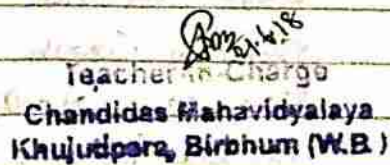 21.4.18
Teacher in Charge
Chandidas Mahavidyalaya
Khujutipara, Birbhum (W.B.)